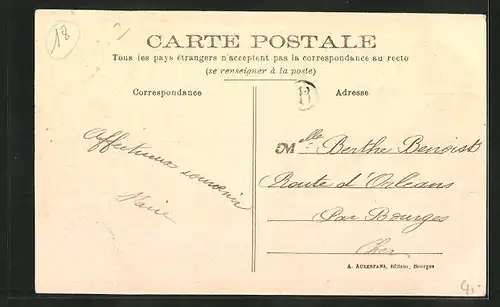 18
CARTE POSTALE
Tous les pays étrangers n'acceptent pas la correspondance au recto
(se renseigner à la poste)
Correspondance
Adresse
B
Affectueux souvenir
Marie
Melle Berthe Benoist
Route d'Orléans
Par Bourges
Cher
A. AUXENFANS, éditeur, Bourges